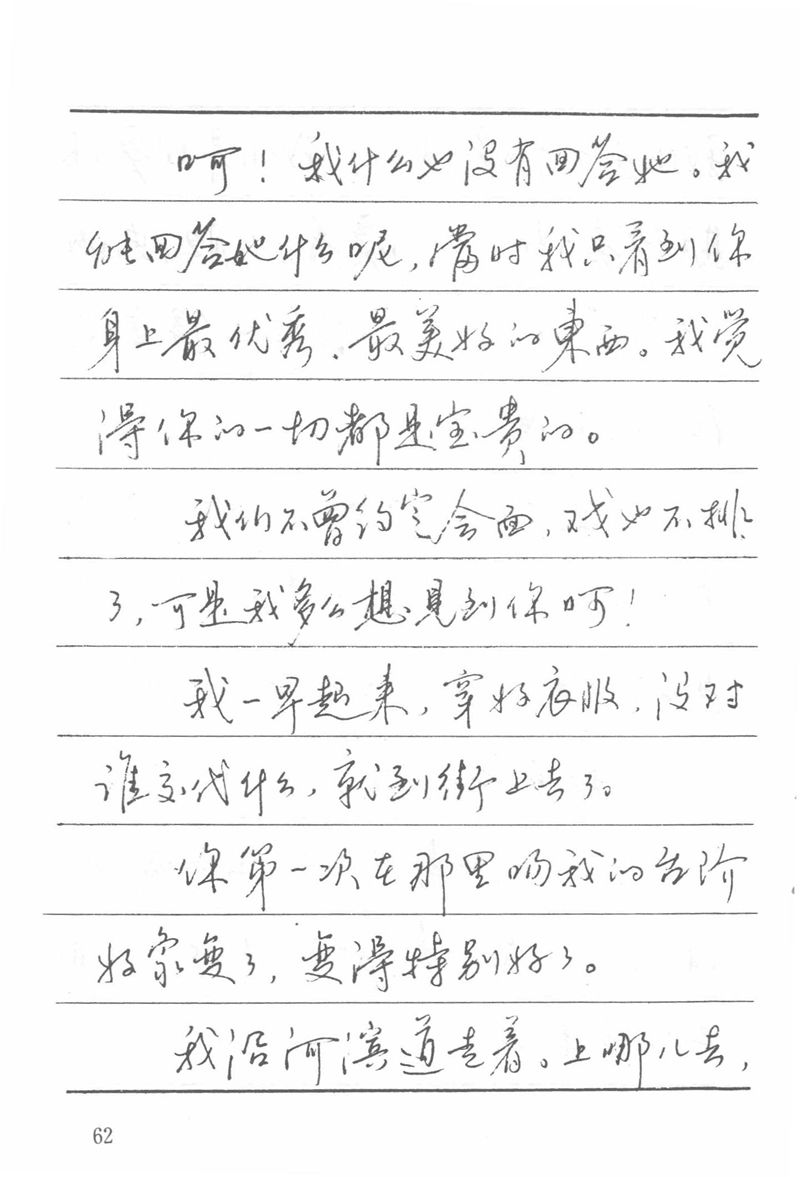 呵！我什么也没有回答她。我
能回答她什么呢，当时我只看到你
身上最优秀、最美好的東西。我觉
得你的一切都是宝贵的。
我们不曾约定会面，戏也不排
了，可是我多么想見到你呵！
我一早起来，穿好衣服，没对
谁交代什么，就到街上去了。
你第一次在那里吻我的台阶
好象变了，变得特别好了。
我沿河滨道走着。上哪儿去，
62